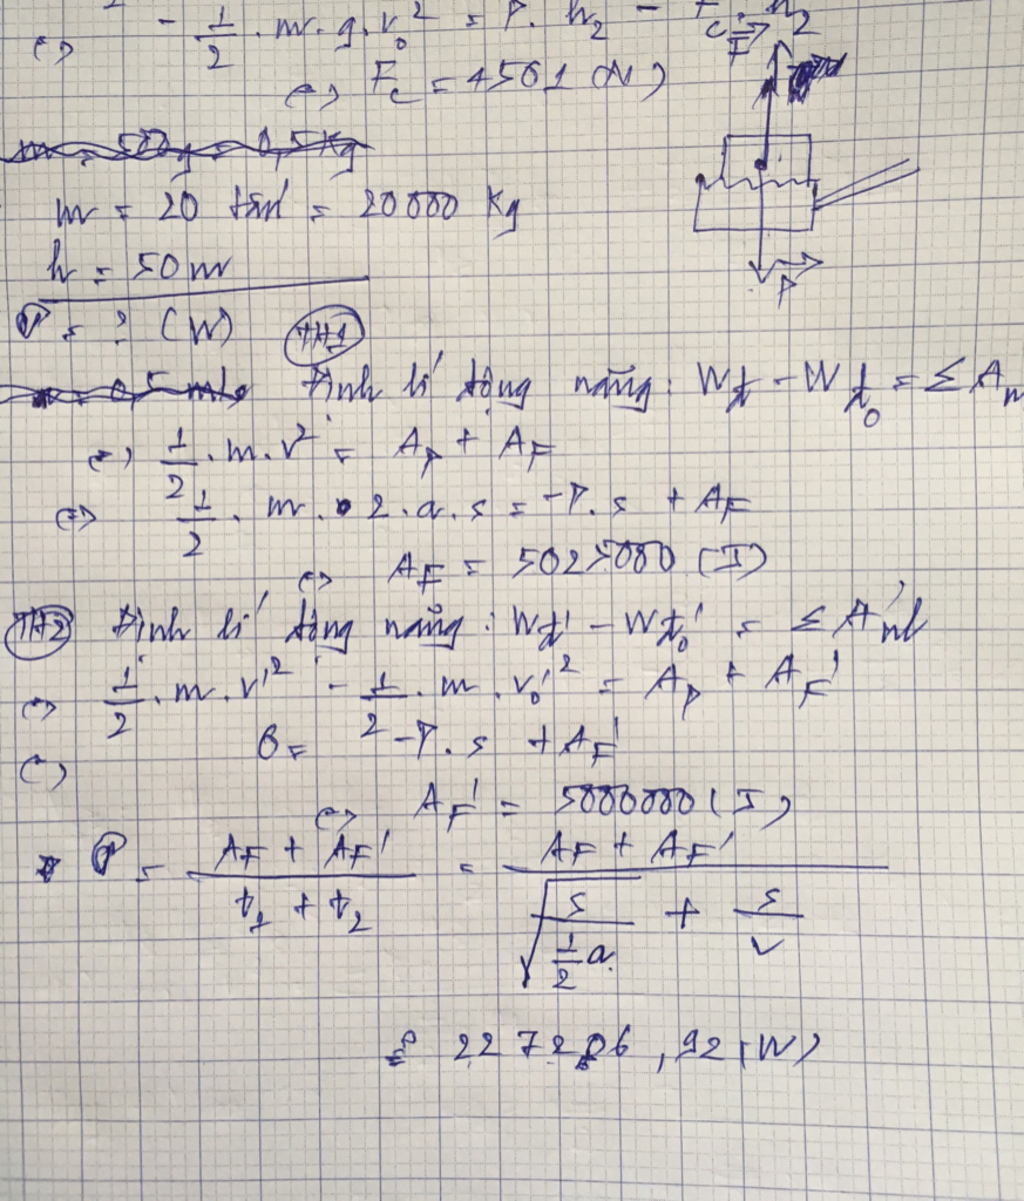 ⇔ - 1/2 . m . g . v₀² = P . h₂ - F_c . h₂
⇔ F_c = 4501 (N)
F
m = 500g = 0,5 Kg
m = 20 tấn = 20000 Kg
h = 50 m
P
𝒫 = ? (W) TH1
Định lí động năng : Wđ - Wđ₀ = Σ A_n
⇔ 1/2 . m . v² = A_P + A_F
⇔ 1/2 . m . 2 . a . s = -P . s + A_F
⇔ A_F = 5025000 (J)
TH2 Định lí động năng : Wđ' - Wđ₀' = Σ A'nl
⇔ 1/2 . m . v'² - 1/2 . m . v₀'² = A_P + A_F'
⇔ 0 = -P . s + A_F'
⇔ A_F' = 5000000 (J)
𝒫 = (A_F + A_F') / (t₁ + t₂) = (A_F + A_F') / (√(s / (1/2 a)) + s/v)
= 227206,92 (W)